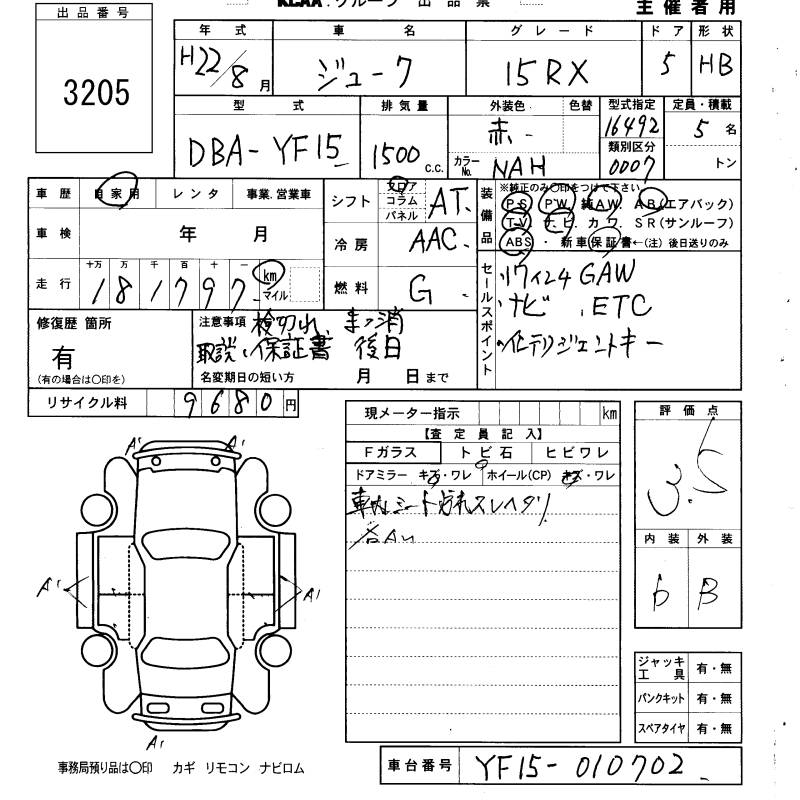 KCAA グループ 出品票
主催者用
出品番号
3205
年式 車名 グレード ドア 形状
H22/8月 ジューク 15RX 5 HB
型式 排気量 外装色 色替 型式指定 定員・積載
DBA-YF15 1500 c.c. 赤 16492 5名
カラーNo. NAH 類別区分 0007 トン
車歴 自家用 レンタ 事業.営業車
シフト フロア コラム パネル AT
装備品 ※純正のみ〇印をつけて下さい
PS PW 純AW AB(エアバック)
TV ナビ カワ SR(サンルーフ)
ABS ・ 新車保証書←(注) 後日送りのみ
車検 年 月
冷房 AAC
走行 十万 万 千 百 十 一
181797 km マイル
燃料 G
セールスポイント
17インチ GAW
ナビ ETC
インテリジェントキー
修復歴 箇所
有
(有の場合は〇印を)
注意事項 検切れ まっ消
取説、保証書 後日
名変期日の短い方 月 日まで
リサイクル料 9680円
現メーター指示 km
【査定員記入】
Fガラス トビ石 ヒビワレ
ドアミラー キズ・ワレ ホイール(CP) キズ・ワレ
車内シート汚れスレヘタリ
各A
評価点
3.5
内装 外装
D B
A1 A1
A1 A1
A1
ジャッキ工具 有・無
パンクキット 有・無
スペアタイヤ 有・無
事務局預り品は〇印 カギ リモコン ナビロム
車台番号 YF15-010702